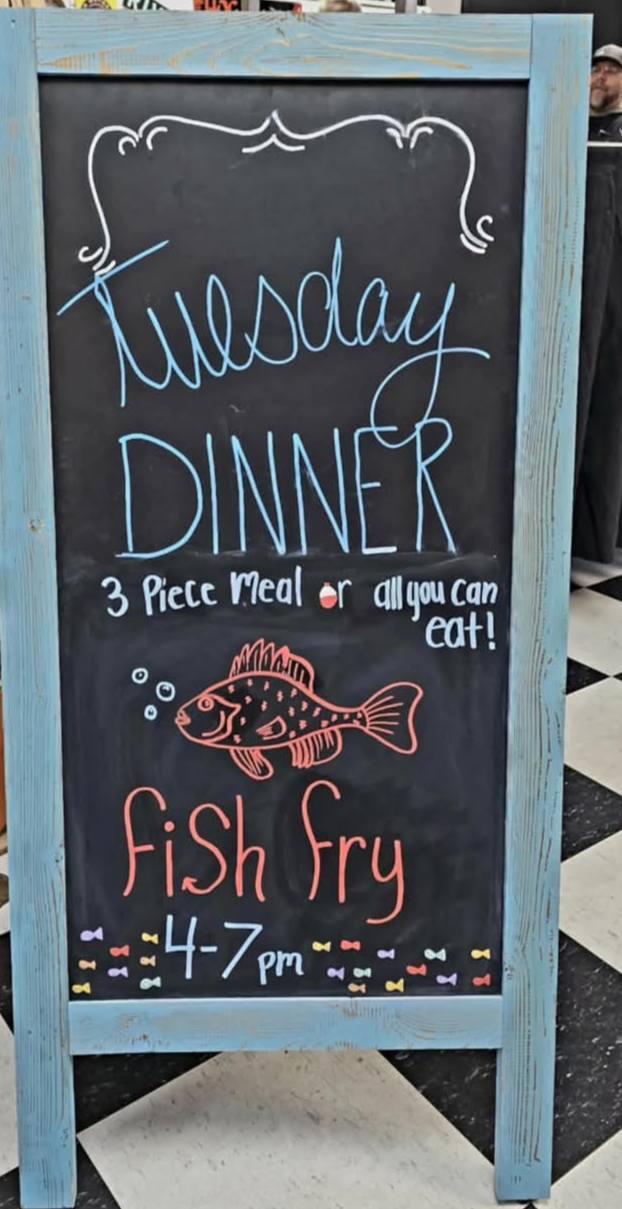 Tuesday
DINNER
3 Piece Meal or all you can
eat!
fish fry
4-7pm